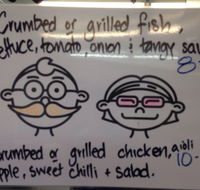 Crumbed or grilled fish,
lettuce, tomato, onion & tangy sau
8-
crumbed or grilled chicken, aioli
10-
apple, sweet chilli + salad.